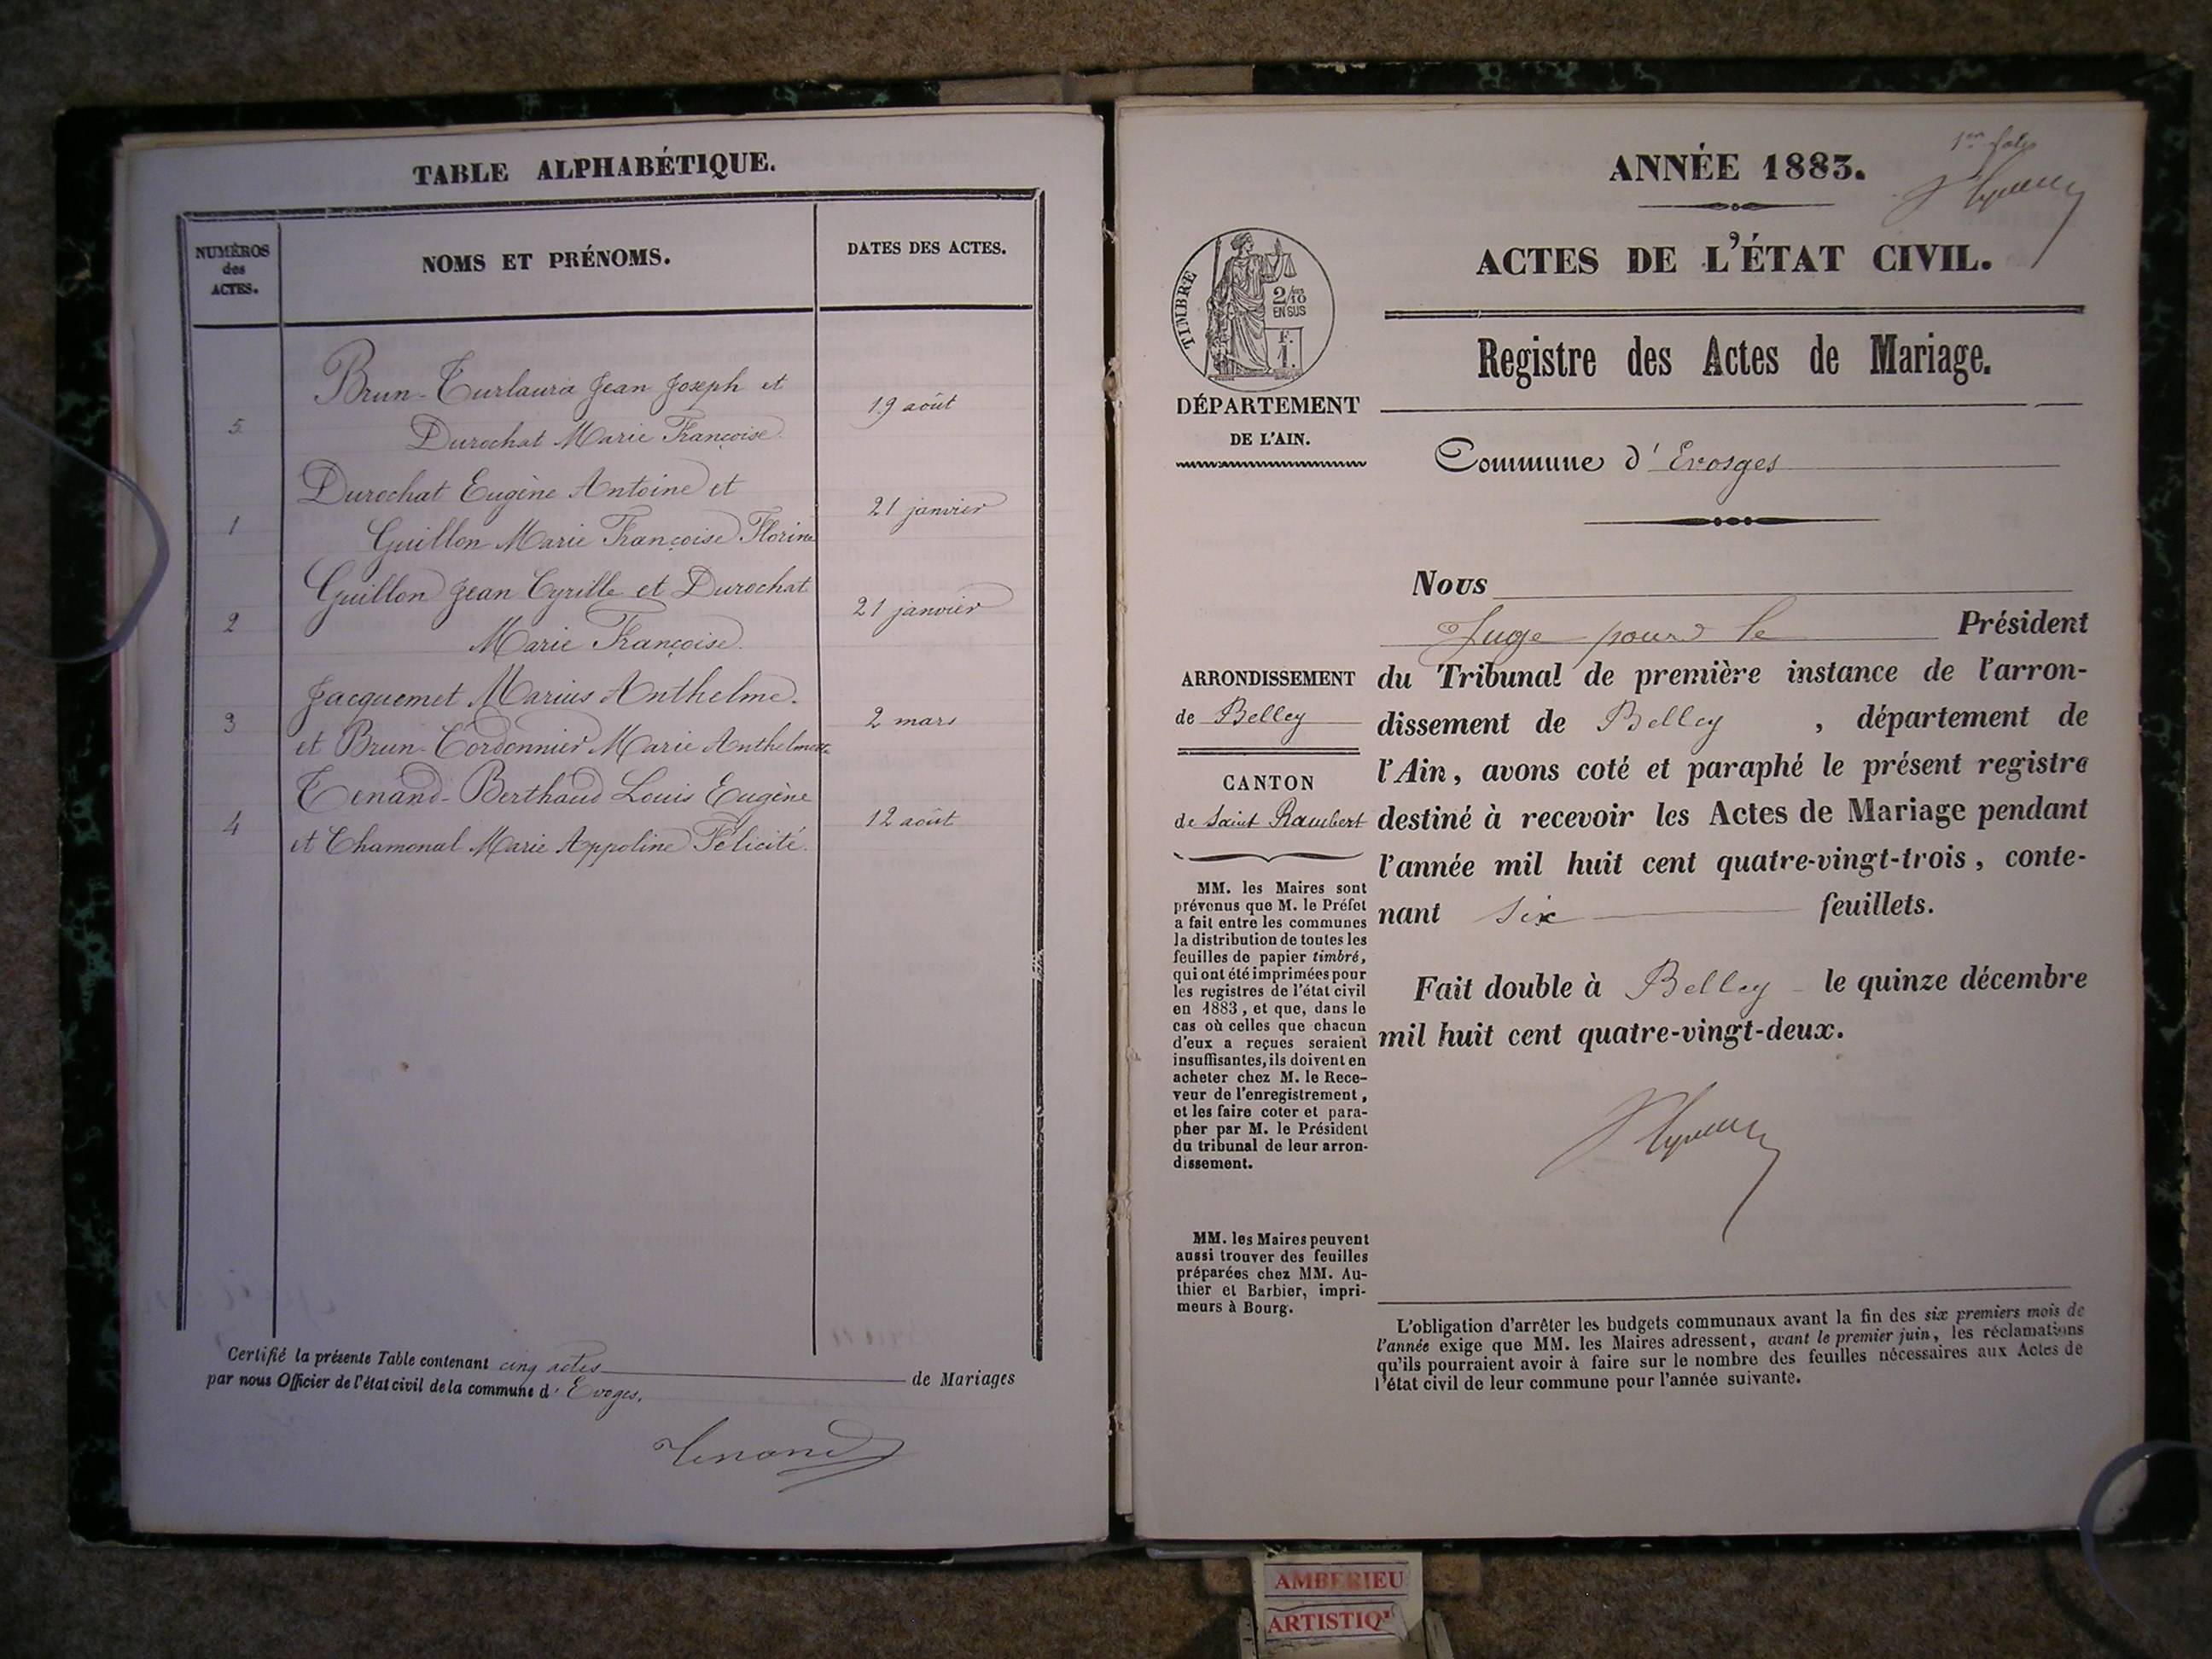 TABLE ALPHABÉTIQUE.
NUMÉROS
des
ACTES.
NOMS ET PRÉNOMS.
DATES DES ACTES.
Brun-Turlaura Jean Joseph et
5 Durochat Marie Françoise. 19 août
Durochat Eugène Antoine et
1 Guillon Marie Françoise Florine 21 janvier
Guillon Jean Cyrille et Durochat
2 Marie Françoise. 21 janvier
Jacquemet Marius Anthelme.
3 et Brun-Cordonnier Marie Anthelmette 2 mars
Tenand-Berthaud Louis Eugène
4 et Chamonal Marie Appoline Félicité. 12 août
Certifié la présente Table contenant cinq actes de Mariages
par nous Officier de l'état civil de la commune d' Evoges.
Tenand
1er folio
ANNÉE 1883.
ACTES DE L'ÉTAT CIVIL.
TIMBRE
2/10
EN SUS
F.
1.
Registre des Actes de Mariage.
DÉPARTEMENT
DE L'AIN.
Commune d' Evosges
Nous
Juge pour le Président
du Tribunal de première instance de l'arron-
dissement de Belley, département de
l'Ain, avons coté et paraphé le présent registre
destiné à recevoir les Actes de Mariage pendant
l'année mil huit cent quatre-vingt-trois, conte-
nant six feuillets.
Fait double à Belley le quinze décembre
mil huit cent quatre-vingt-deux.
ARRONDISSEMENT
de Belley
CANTON
de Saint Rambert
MM. les Maires sont
prévenus que M. le Préfet
a fait entre les communes
la distribution de toutes les
feuilles de papier timbré,
qui ont été imprimées pour
les registres de l'état civil
en 1883, et que, dans le
cas où celles que chacun
d'eux a reçues seraient
insuffisantes, ils doivent en
acheter chez M. le Rece-
veur de l'enregistrement,
et les faire coter et para-
pher par M. le Président
du tribunal de leur arron-
dissement.
MM. les Maires peuvent
aussi trouver des feuilles
préparées chez MM. Au-
thier et Barbier, impri-
meurs à Bourg.
L'obligation d'arrêter les budgets communaux avant la fin des six premiers mois de
l'année exige que MM. les Maires adressent, avant le premier juin, les réclamations
qu'ils pourraient avoir à faire sur le nombre des feuilles nécessaires aux Actes de
l'état civil de leur commune pour l'année suivante.
AMBERIEU
ARTISTIQ